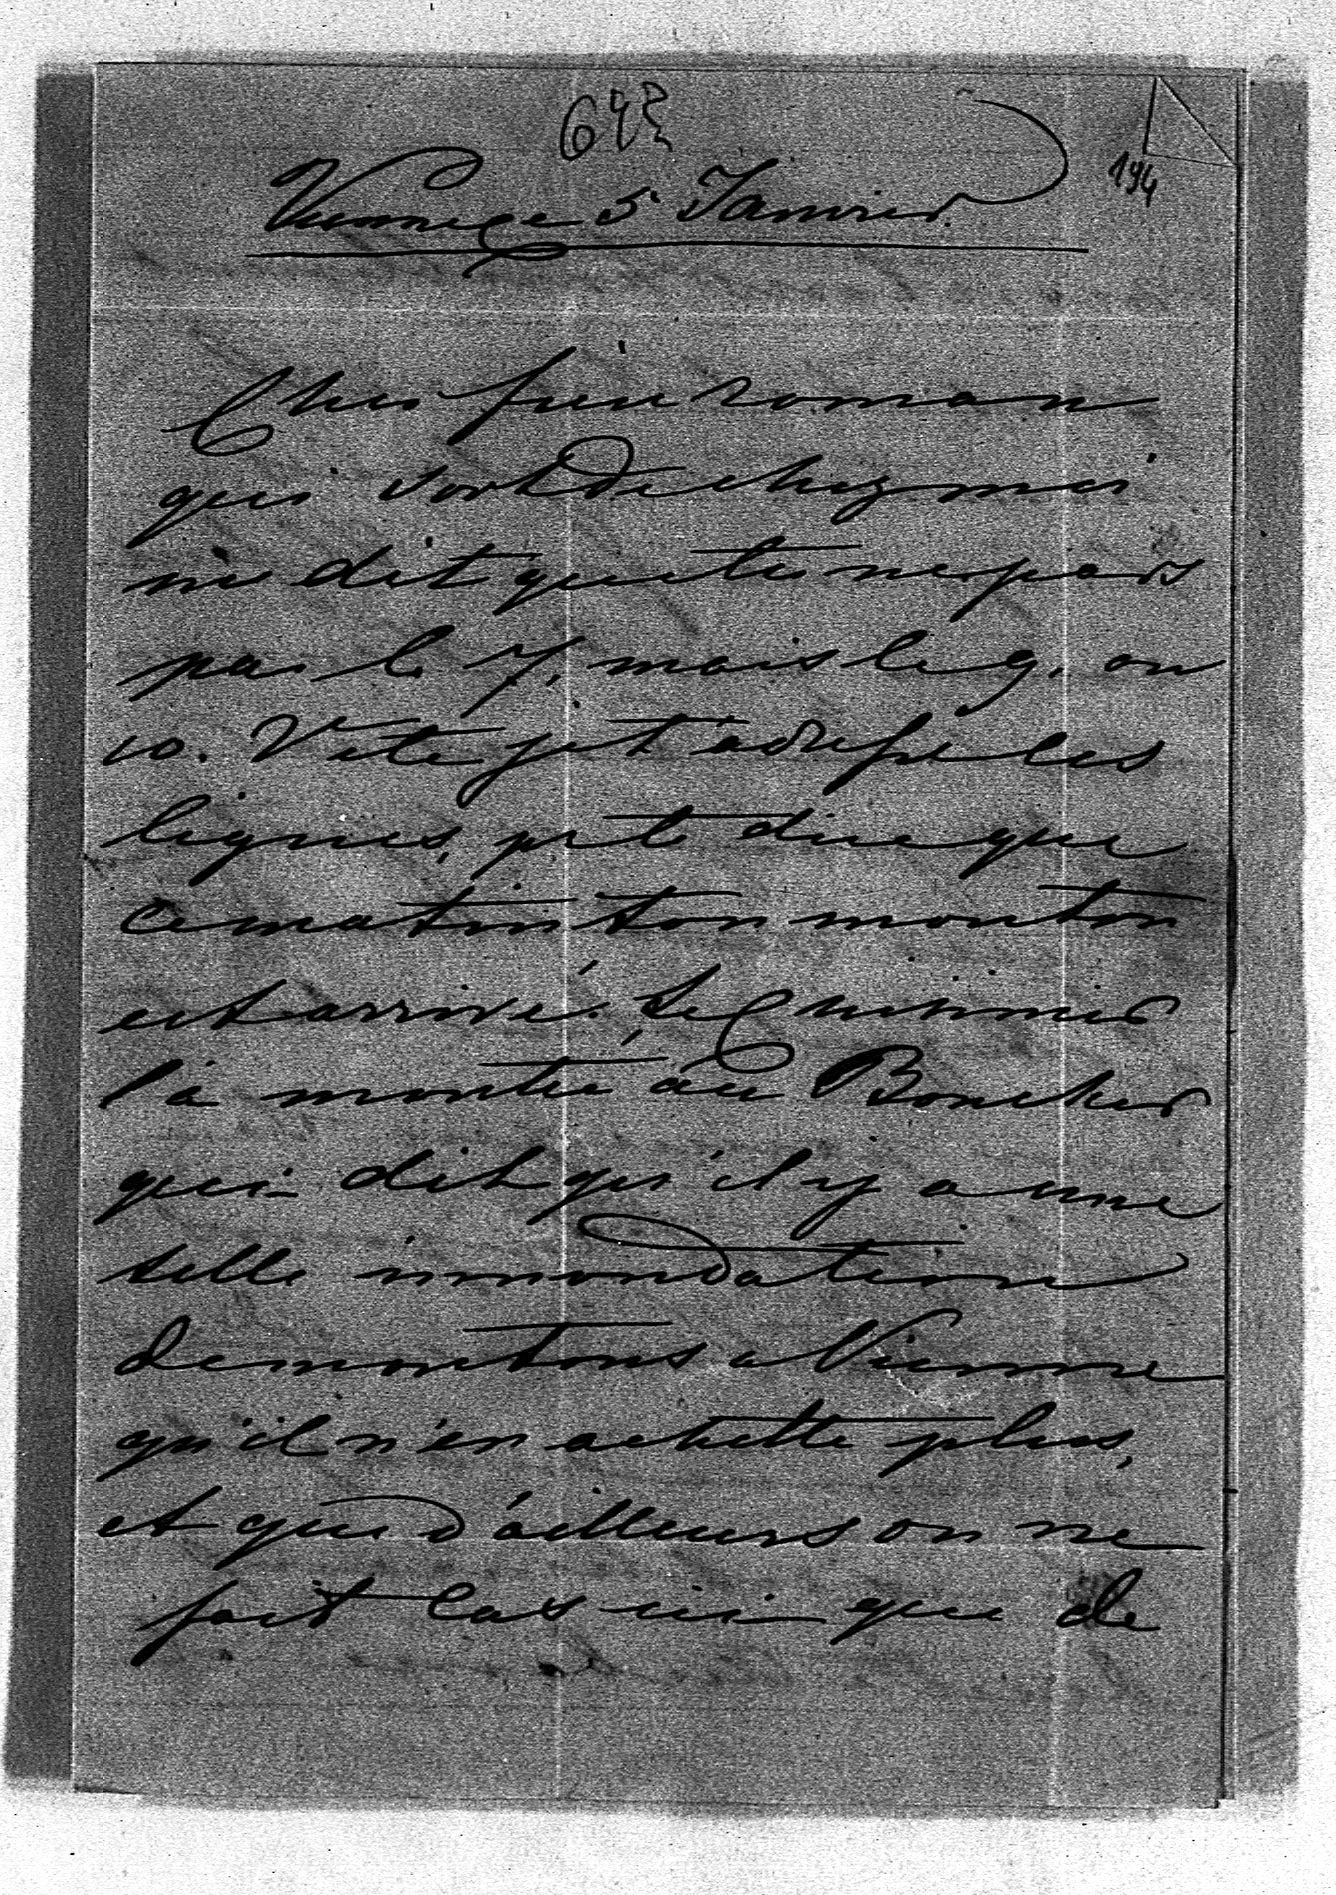 643
194
Vienne ce 5 Janvier.
Cher frère roman
qui sort de chez moi
me dit que tu ne pars
pas le 7, mais le 9. ou
10. Vite je t'adresse les
lignes, pr te dire que
ce matin ton mouton
est arrivé. Le Cuisinier
l'a montré au Boucher
qui dit qu'il y a une
telle innondation
de moutons a Vienne
qu'il n'en achette plus,
et que d'ailleurs on ne
fait cas ici que de